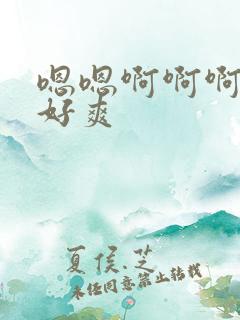 嗯嗯啊啊啊
好爽
夏侯.芝
未经同意禁止转载